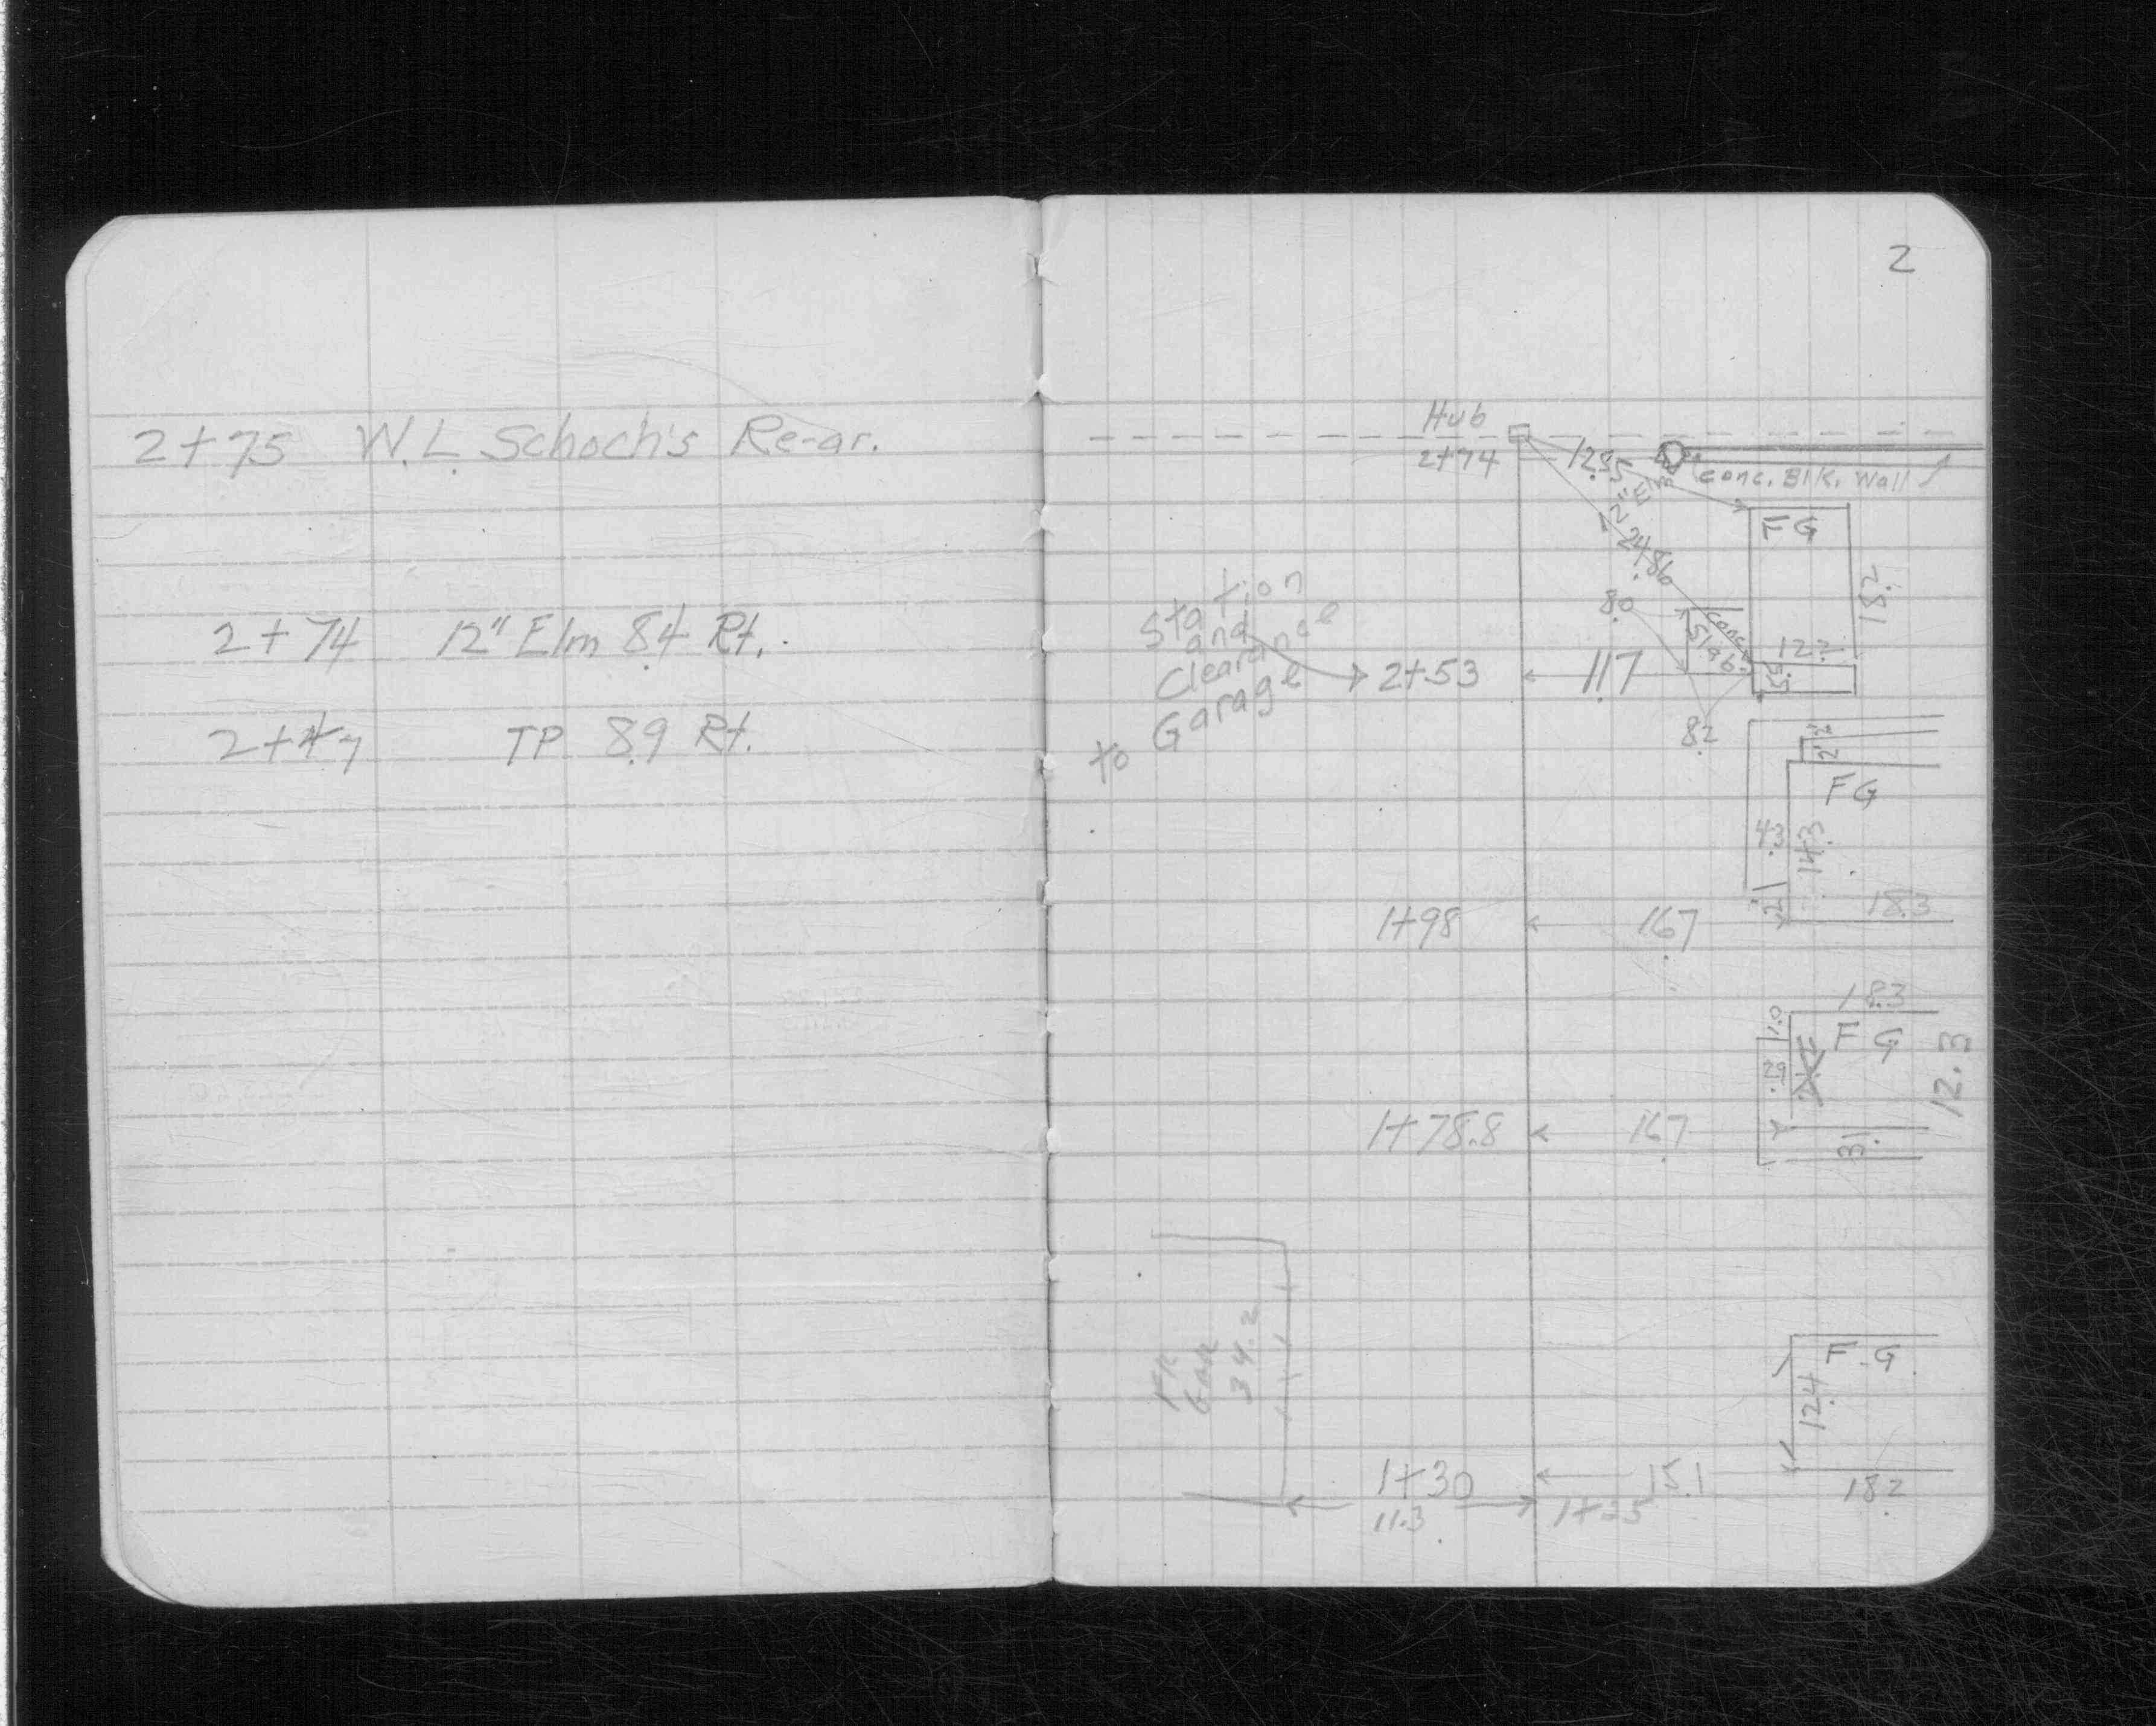 2+75 W.L. Schoch's Re-ar.
2+74 12" Elm 8.4 Rt.
TP 8.9 Rt.
2
Hub
2+74
12.35
12" Elm
conc. Blk. Wall
FG
24.86
18.2
Station
and
Clearance
to Garage
8.0
conc.
Slab
2+53
11.7
12.2
8.2
2.2
FG
4.3
14.3
1+98
16.7
18.3
18.3
1.0
FG
2.9
12.3
1+78.8
16.7
3.1
FR
GAR
34.2
F-G
12.4
1+30
15.1
18.2
11.3
1+25